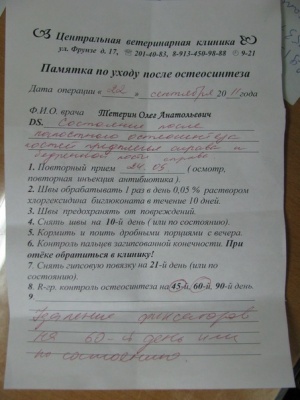 Центральная ветеринарная клиника
ул. Фрунзе д. 17, ☎ 201-40-83, 8-913-450-98-88 9-21
Памятка по уходу после остеосинтеза
Дата операции « 22 » сентября 2011 года
Ф.И.О. врача Тетерин Олег Анатольевич
DS. Состояние после
остеосинтеза
костей предплечья справа и
бедренной кости справа
1. Повторный прием 24.09. ( осмотр,
повторная инъекция антибиотика ).
2. Швы обрабатывать 1 раз в день 0,05 % раствором
хлоргексидина биглюконата в течение 10 дней.
3. Швы предохранять от повреждений.
4. Снять швы на 10-й день ( или по состоянию).
5. Кормить и поить дробными порциями с вечера.
6. Контроль пальцев загипсованной конечности. При
отёке обратиться в клинику!
7. Снять гипсовую повязку на 21-й день (или по
состоянию).
8. R-гр. контроль остеосинтеза на 45-й, 60-й, 90-й день.
9.
Удаление фиксаторов
на 60-й день или
по состоянию.